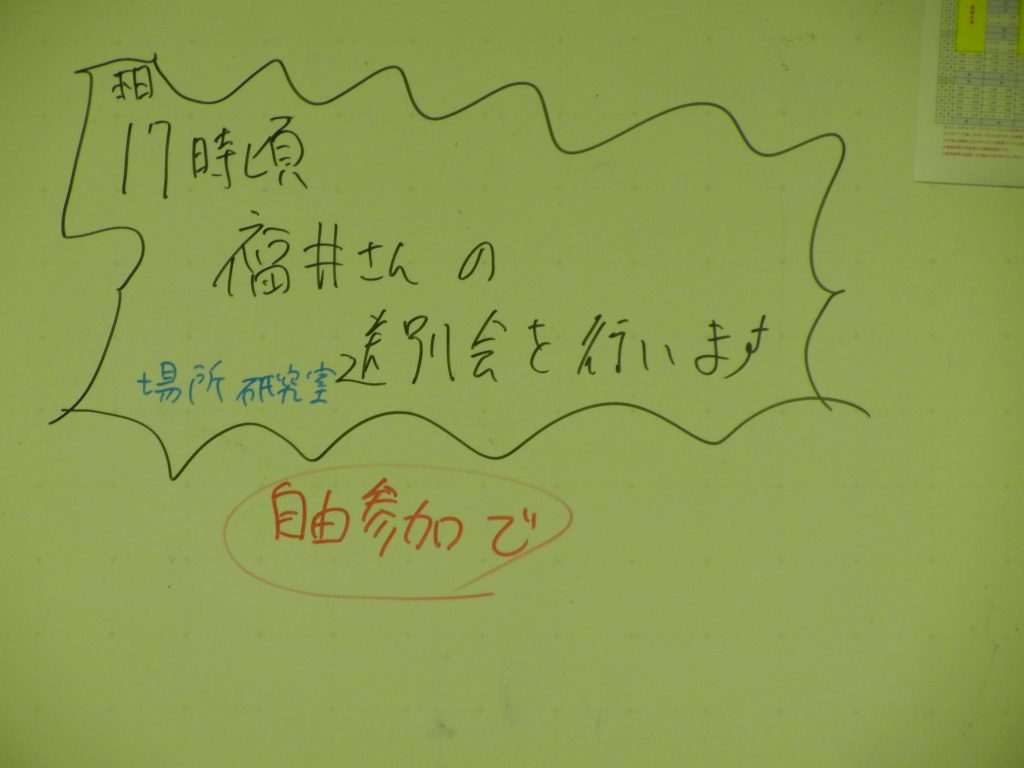 17時頃
福井さんの
送別会を行います
場所 研究室
自由参加で